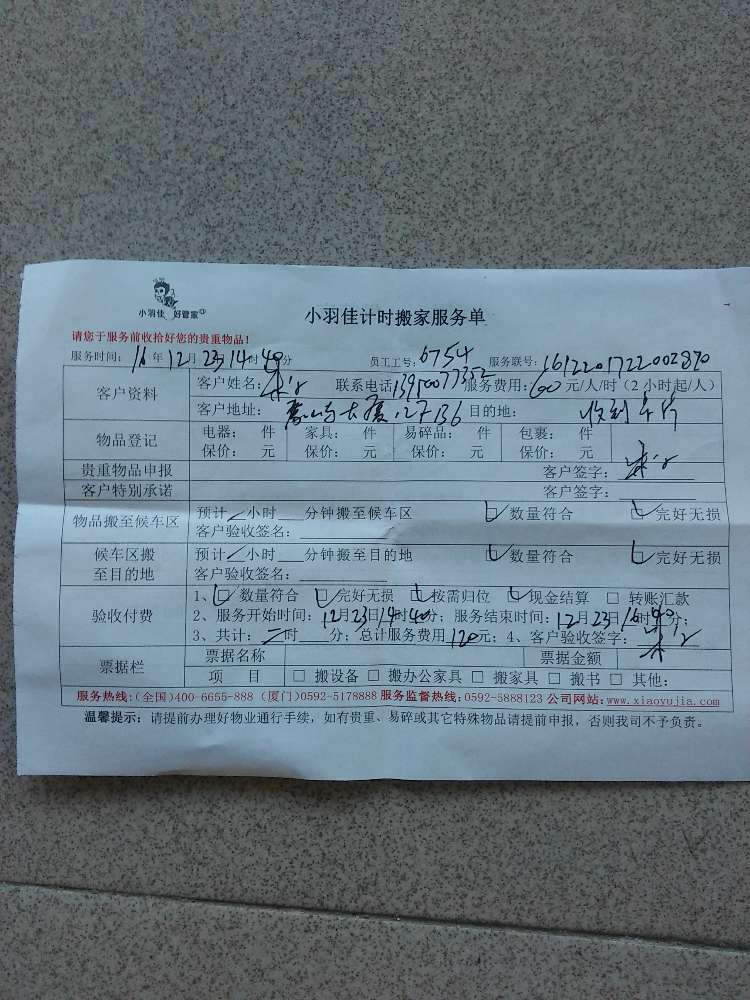 小羽佳 好管家
小羽佳计时搬家服务单
请您于服务前收拾好您的贵重物品!
服务时间: 16 年 12 月 23 日 14 时 40 分 员工工号: 6754 服务联号: 1612201722002890
客户资料 客户姓名: 联系电话 服务费用: 60 元/人/时 (2 小时起/人)
客户地址: 目的地:
物品登记 电器: 件 家具: 件 易碎品: 件 包裹: 件
保价: 元 保价: 元 保价: 元 保价: 元
贵重物品申报 客户签字:
客户特别承诺 客户签字:
物品搬至候车区 预计 小时 分钟搬至候车区 数量符合 完好无损
客户验收签名:
候车区搬至目的地 预计 小时 分钟搬至目的地 数量符合 完好无损
客户验收签名:
验收付费 1、 数量符合 完好无损 按需归位 现金结算 □ 转账汇款
2、服务开始时间: 12月23日14时40分; 服务结束时间: 12月23日16时40分;
3、共计: 二时 分; 总计服务费用 120 元; 4、客户验收签字:
票据栏 票据名称 票据金额
项 目 □ 搬设备 □ 搬办公家具 □ 搬家具 □ 搬书 □ 其他:
服务热线:(全国)400-6655-888 (厦门)0592-5178888 服务监督热线:0592-5888123 公司网站:www.xiaoyujia.com
温馨提示: 请提前办理好物业通行手续, 如有贵重、易碎或其它特殊物品请提前申报, 否则我司不予负责。